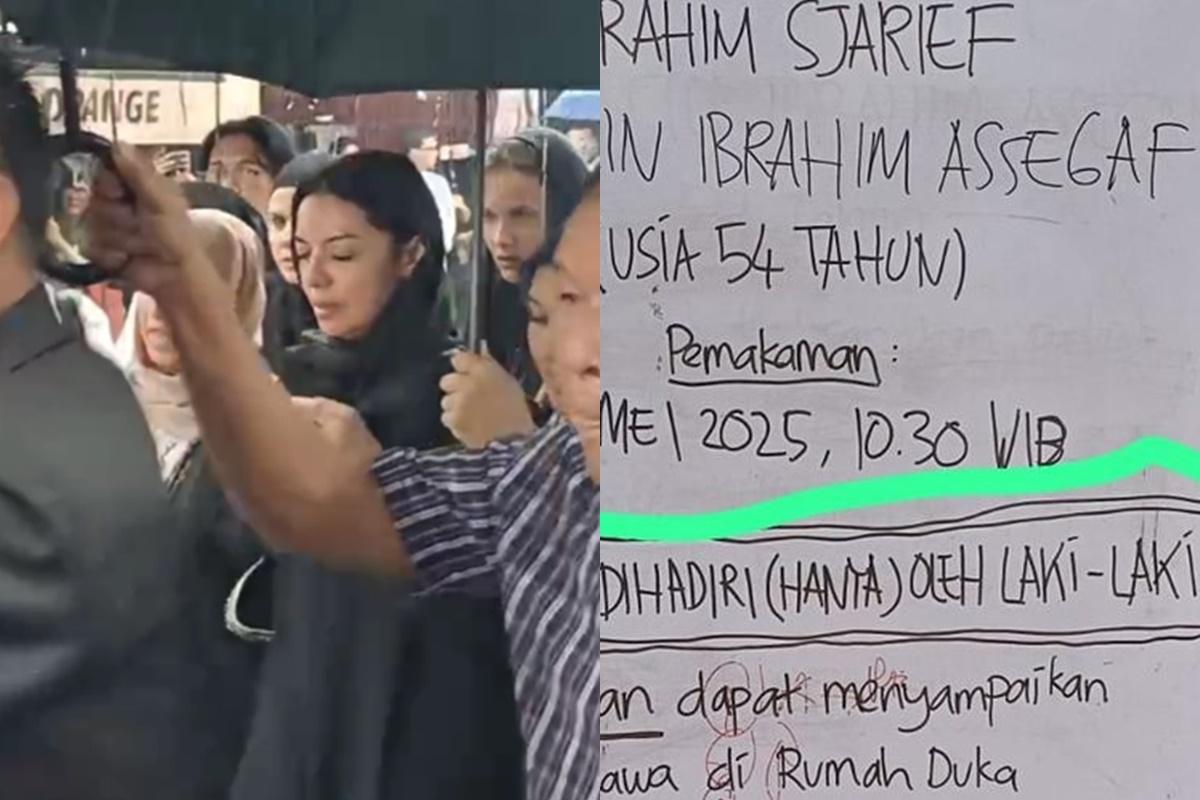 ORANGE
RAHIM SJARIEF
IN IBRAHIM ASSEGAF
(USIA 54 TAHUN)
Pemakaman :
MEI 2025, 10.30 WIB
DIHADIRI (HANYA) OLEH LAKI-LAKI
an dapat menyampaikan
awa di Rumah Duka